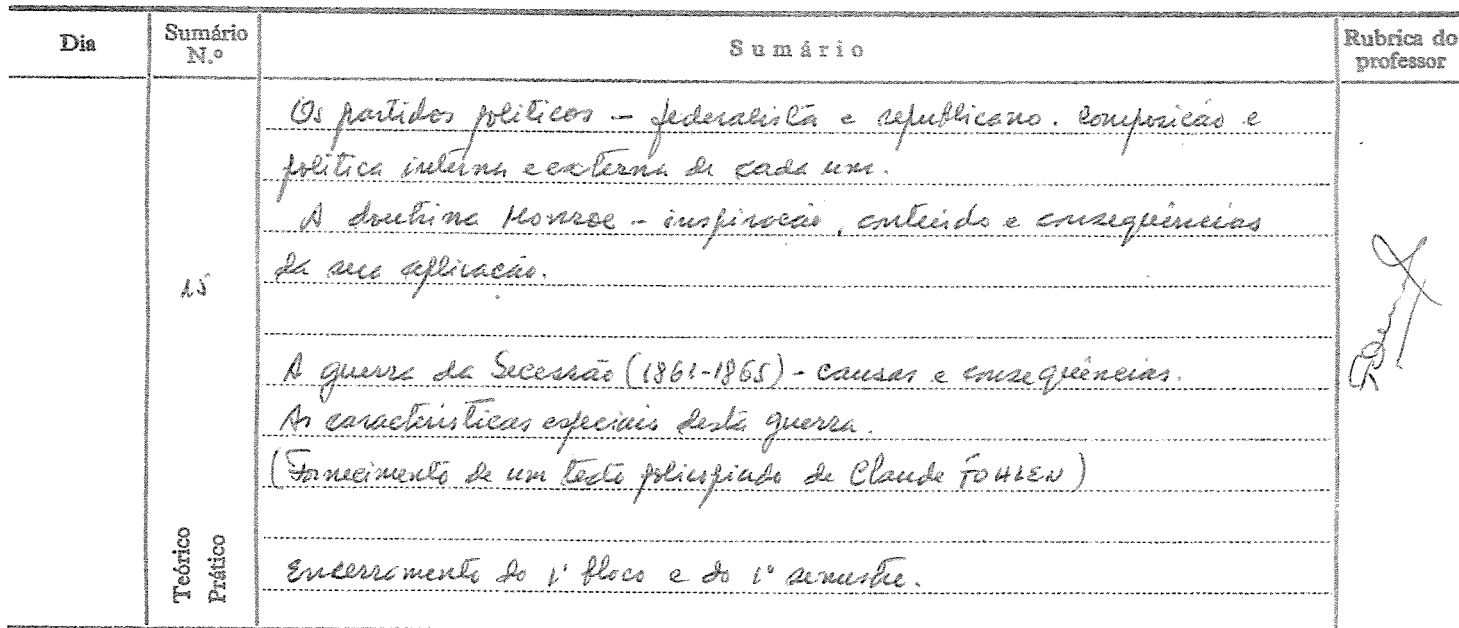 Dia
Sumário N.º
Sumário
Rubrica do professor
Os partidos políticos – federalista e republicano. Composição e
política interna e externa de cada um.
A doutrina Monroe – inspiração, conteúdo e consequências
da sua aplicação.
15
A guerra da Secessão (1861-1865) - causas e consequências.
As características especiais desta guerra.
(Fornecimento de um texto policopiado de Claude FOHLEN)
Teórico Prático
Encerramento do 1º bloco e do 1º semestre.